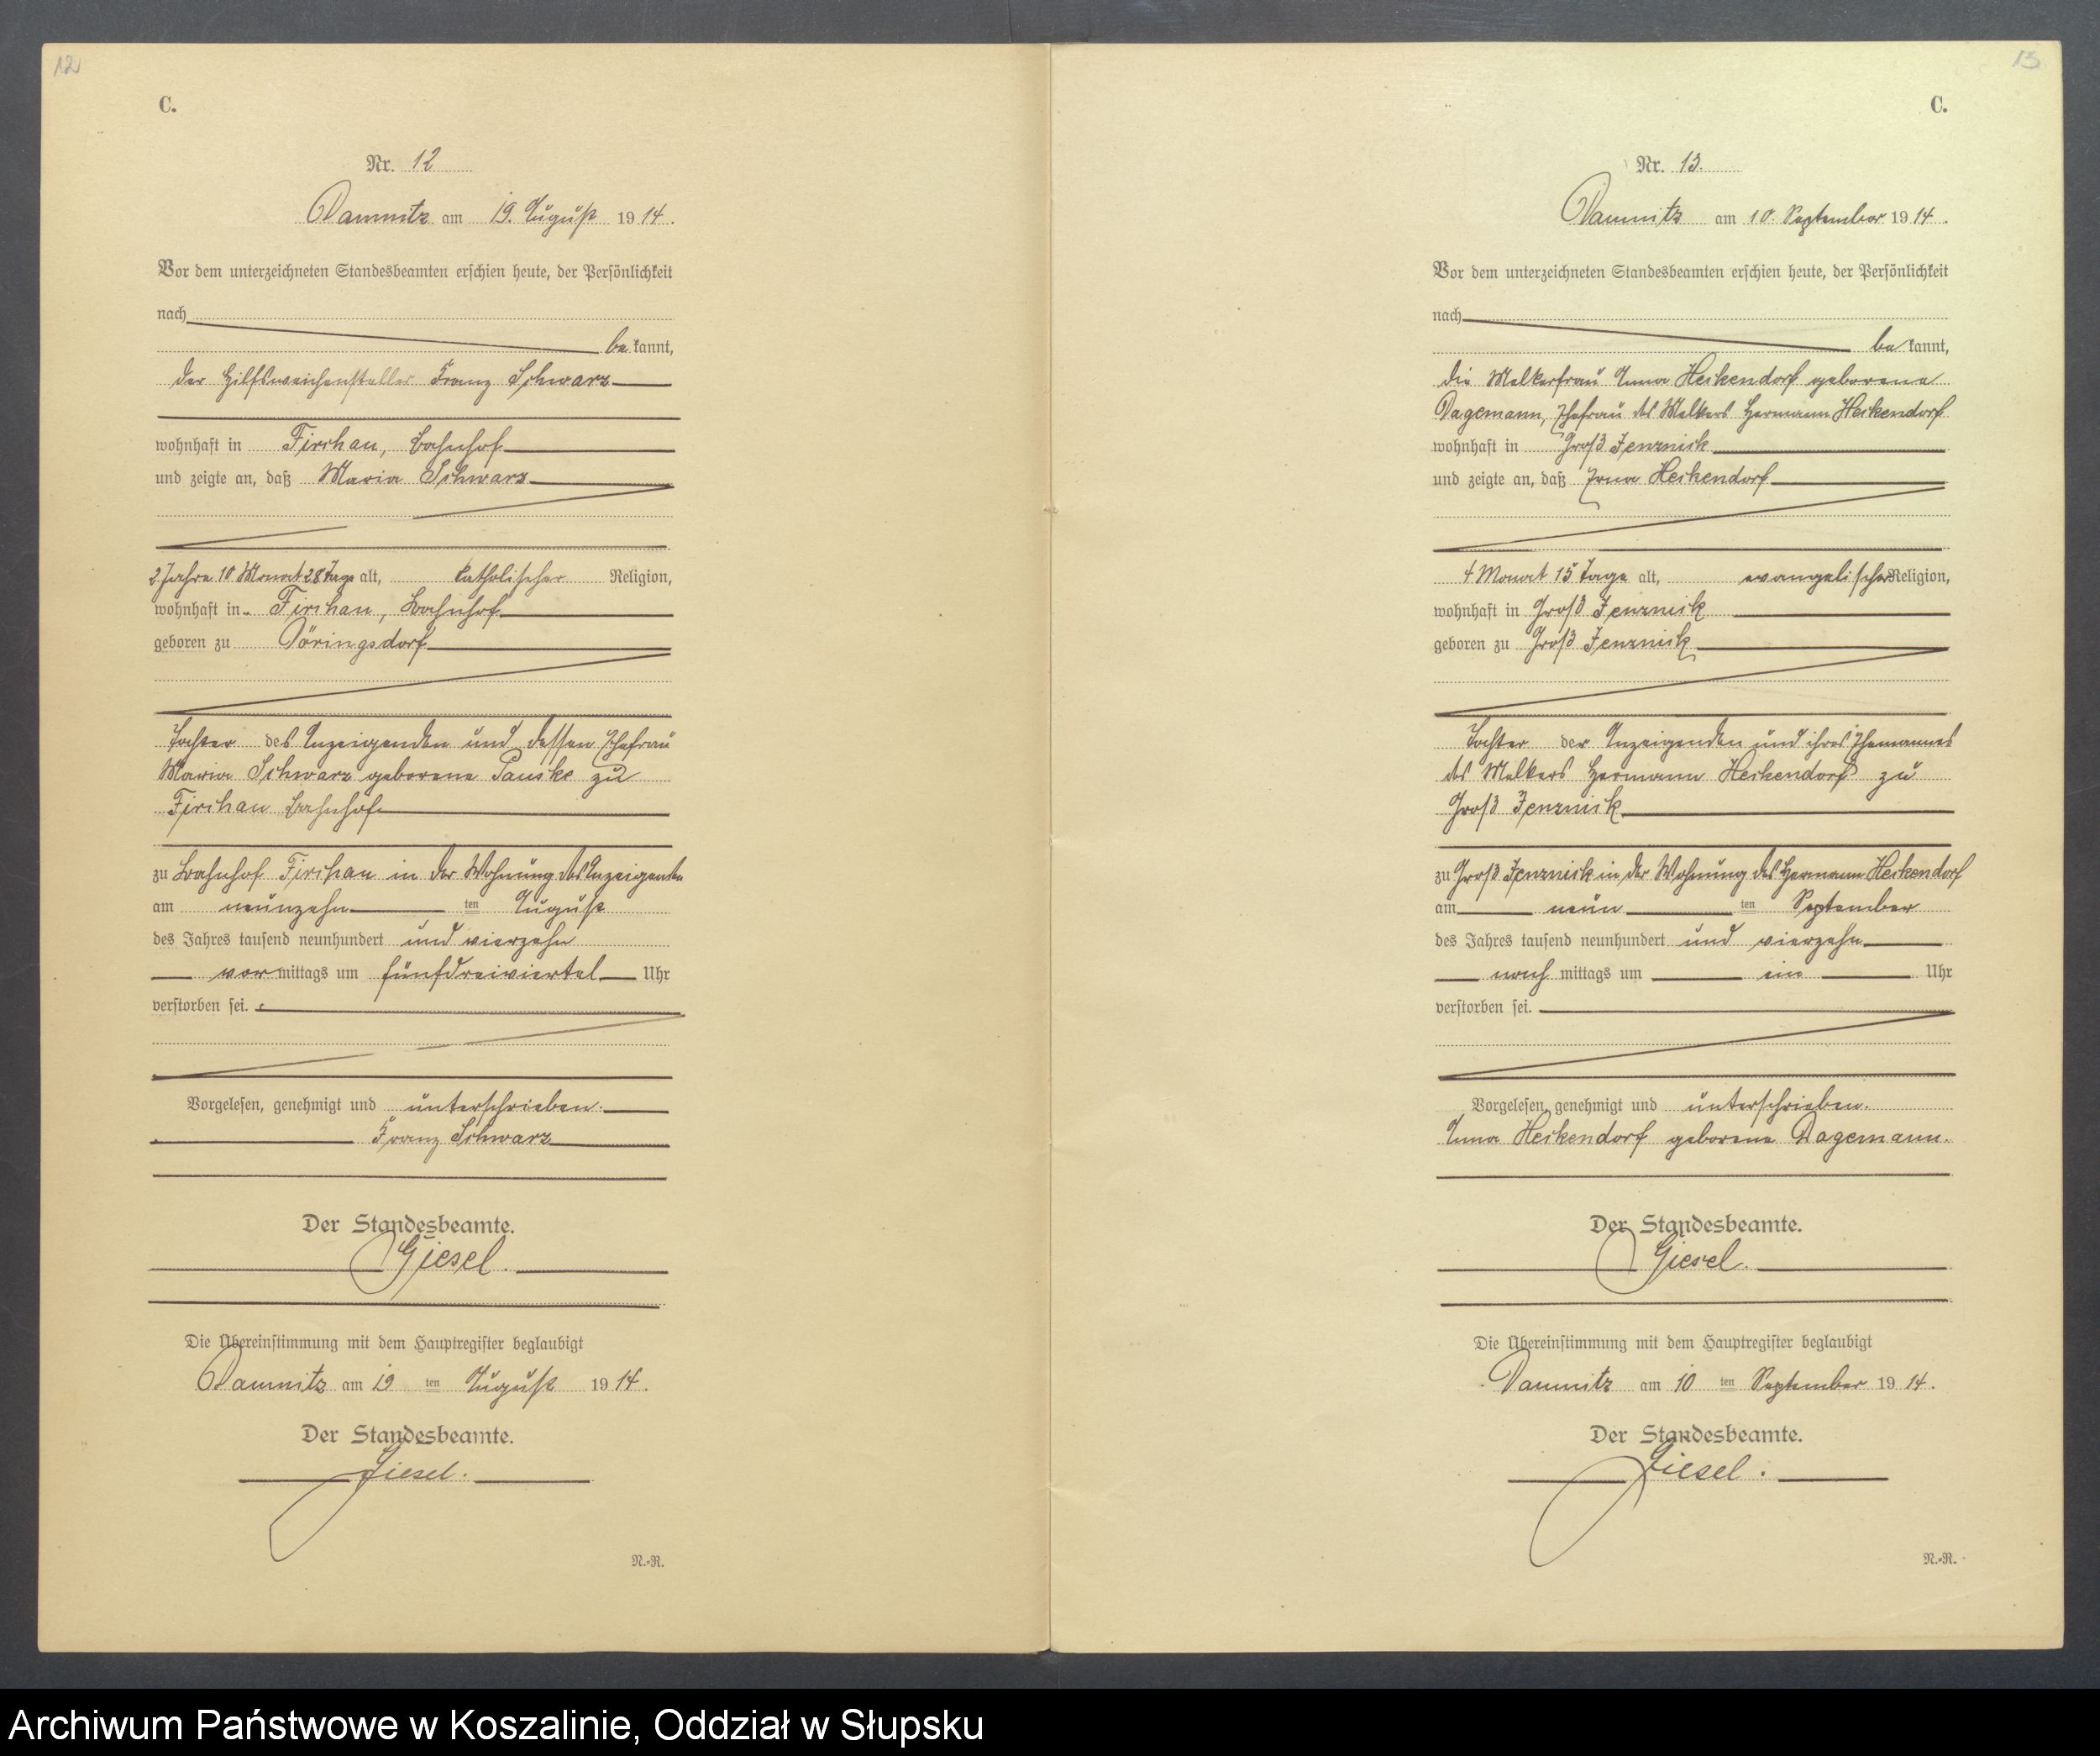 12
C.
Nr. 12
Damnitz am 19. August 1914.
Vor dem unterzeichneten Standesbeamten erschien heute, der Persönlichkeit
nach
be kannt,
der Hilfsweichensteller Franz Schwarz
wohnhaft in Firchau, Bahnhof
und zeigte an, daß Maria Schwarz
2 Jahre 10 Monat 28 Tage alt, katholischer Religion,
wohnhaft in Firchau, Bahnhof
geboren zu Döringsdorf
Tochter des Anzeigenden und dessen Ehefrau
Maria Schwarz geborene Panske zu
Firchau Bahnhof
zu Bahnhof Firchau in der Wohnung des Anzeigenden
am neunzehn ten August
des Jahres tausend neunhundert und vierzehn
vor mittags um fünfdreiviertel Uhr
verstorben sei.
Vorgelesen, genehmigt und unterschrieben.
Franz Schwarz
Der Standesbeamte.
Giesel.
Die Übereinstimmung mit dem Hauptregister beglaubigt
Damnitz am 19 ten August 1914.
Der Standesbeamte.
Giesel.
N.-R.
13
C.
Nr. 13.
Damnitz am 10. September 1914.
Vor dem unterzeichneten Standesbeamten erschien heute, der Persönlichkeit
nach
be kannt,
die Melkerfrau Anna Heikendorf geborene
Dagemann, Ehefrau des Melkers Hermann Heikendorf
wohnhaft in Groß Jenznick
und zeigte an, daß Erna Heikendorf
4 Monat 15 Tage alt, evangelischer Religion,
wohnhaft in Groß Jenznick
geboren zu Groß Jenznick
Tochter der Anzeigenden und ihres Ehemannes
des Melkers Hermann Heikendorf zu
Groß Jenznick
zu Groß Jenznick in der Wohnung des Hermann Heikendorf
am neun ten September
des Jahres tausend neunhundert und vierzehn
nach mittags um ein Uhr
verstorben sei.
Vorgelesen, genehmigt und unterschrieben.
Anna Heikendorf geborene Dagemann.
Der Standesbeamte.
Giesel.
Die Übereinstimmung mit dem Hauptregister beglaubigt
Damnitz am 10 ten September 1914.
Der Standesbeamte.
Giesel.
N.-R.
Archiwum Państwowe w Koszalinie, Oddział w Słupsku